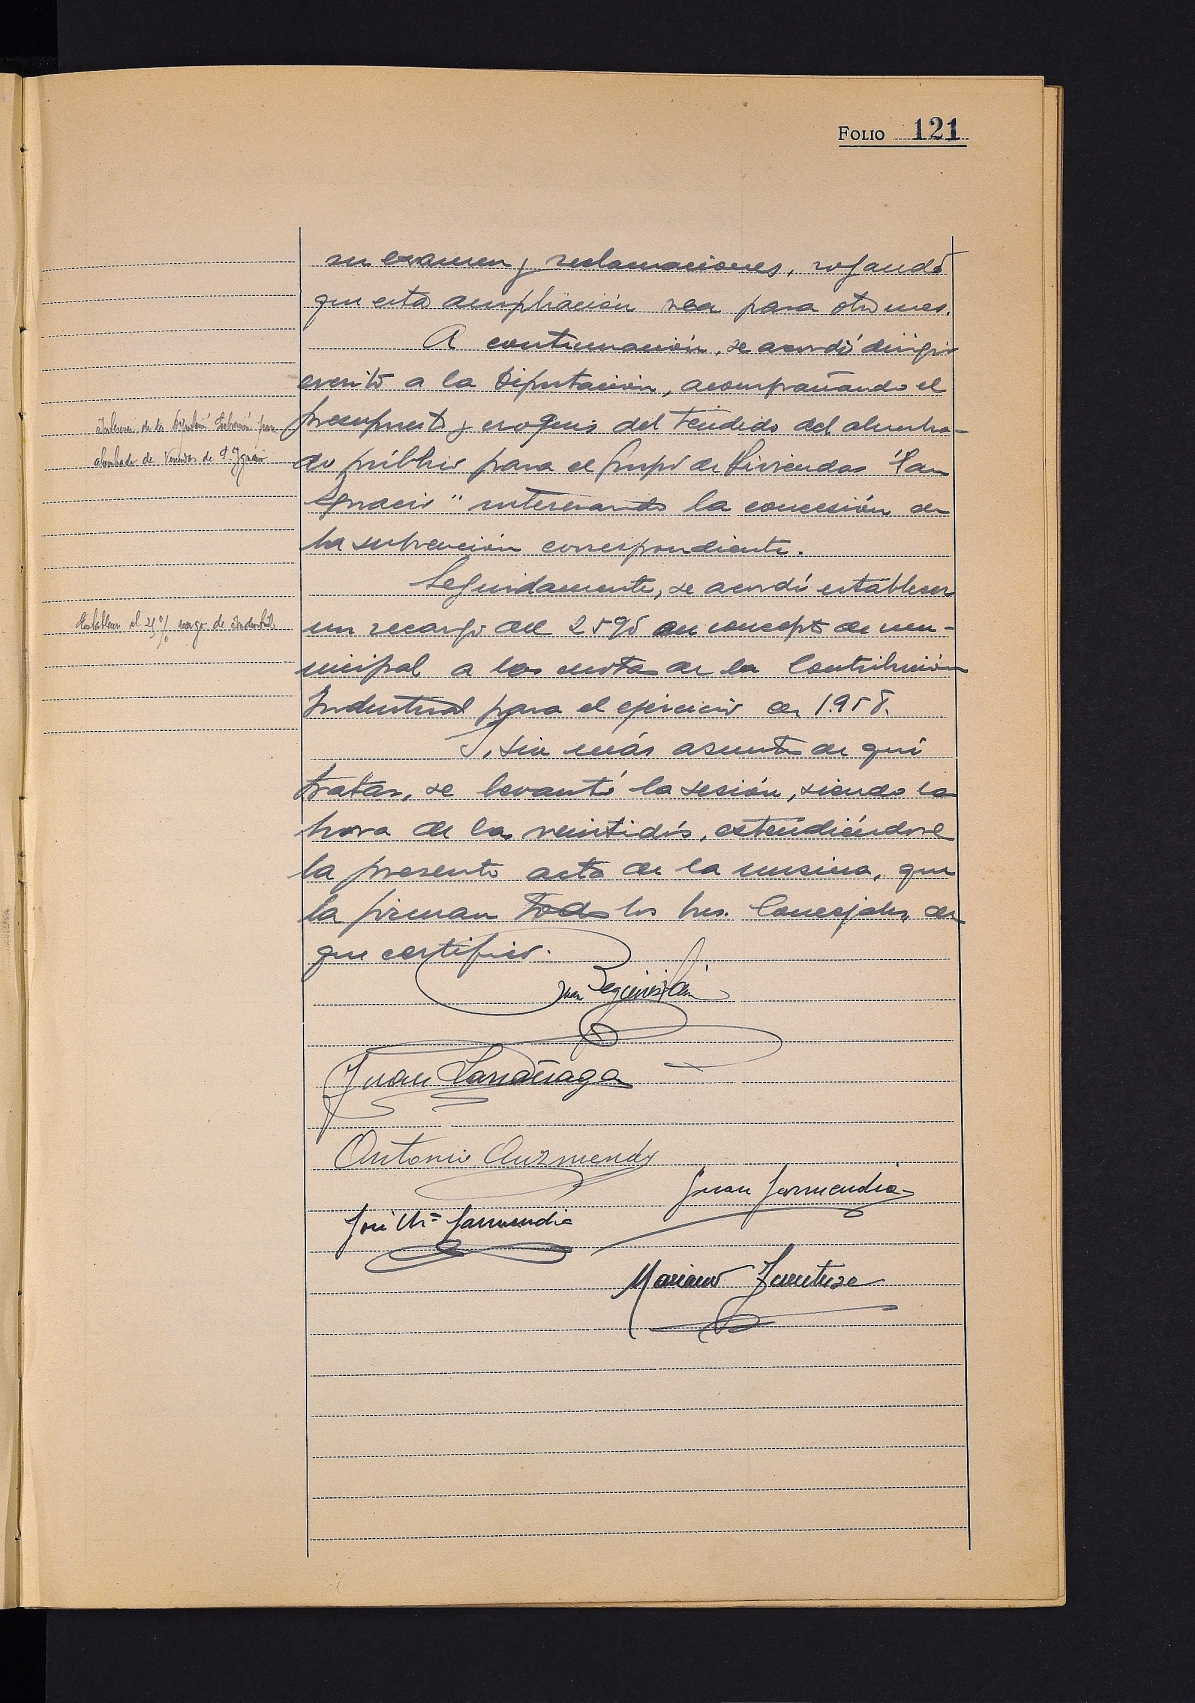 FOLIO 121
su examen y reclamaciones, rogando
que esta ampliación sea para otro mes.
A continuación, se acordó dirigir
escrito a la Diputación, acompañando el
presupuesto y croquis del tendido del alumbra-
do público para el Grupo de Viviendas "San
Ignacio" interesando la concesión de
la subvención correspondiente.
Seguidamente, se acordó establecer
un recargo del 25% en concepto de mu-
nicipal a las cuotas de la Contribución
Industrial para el ejercicio de 1.958.
Y, sin más asuntos de que
tratar, se levantó la sesión, siendo la
hora de las veintidós, extendiéndose
la presente acta de la misma, que
la firman todos los Srs. Concejales, de
que certifico.
Interesar de la Diputación subvención para
alumbrado de Viviendas de S. Ignacio
Establecer el 25% recargo de industrial
Juan Beguiristain
Juan Larrañaga
Antonio Auzmendi
Juan Garmendia
José Mª Garmendia
Mariano